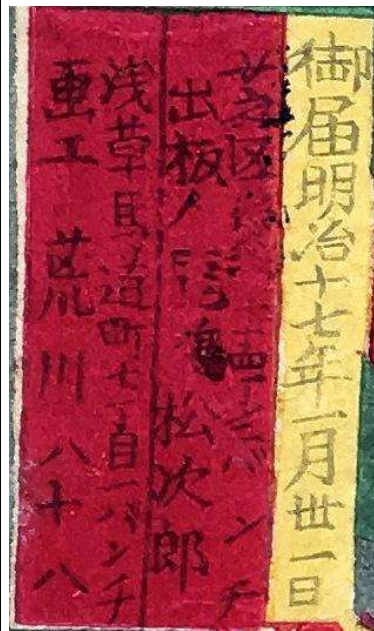 御届明治十七年一月丗一日
芝区 バンチ
出板人 松次郎
浅草馬道町七丁目一バンチ
画工 荒川八十八